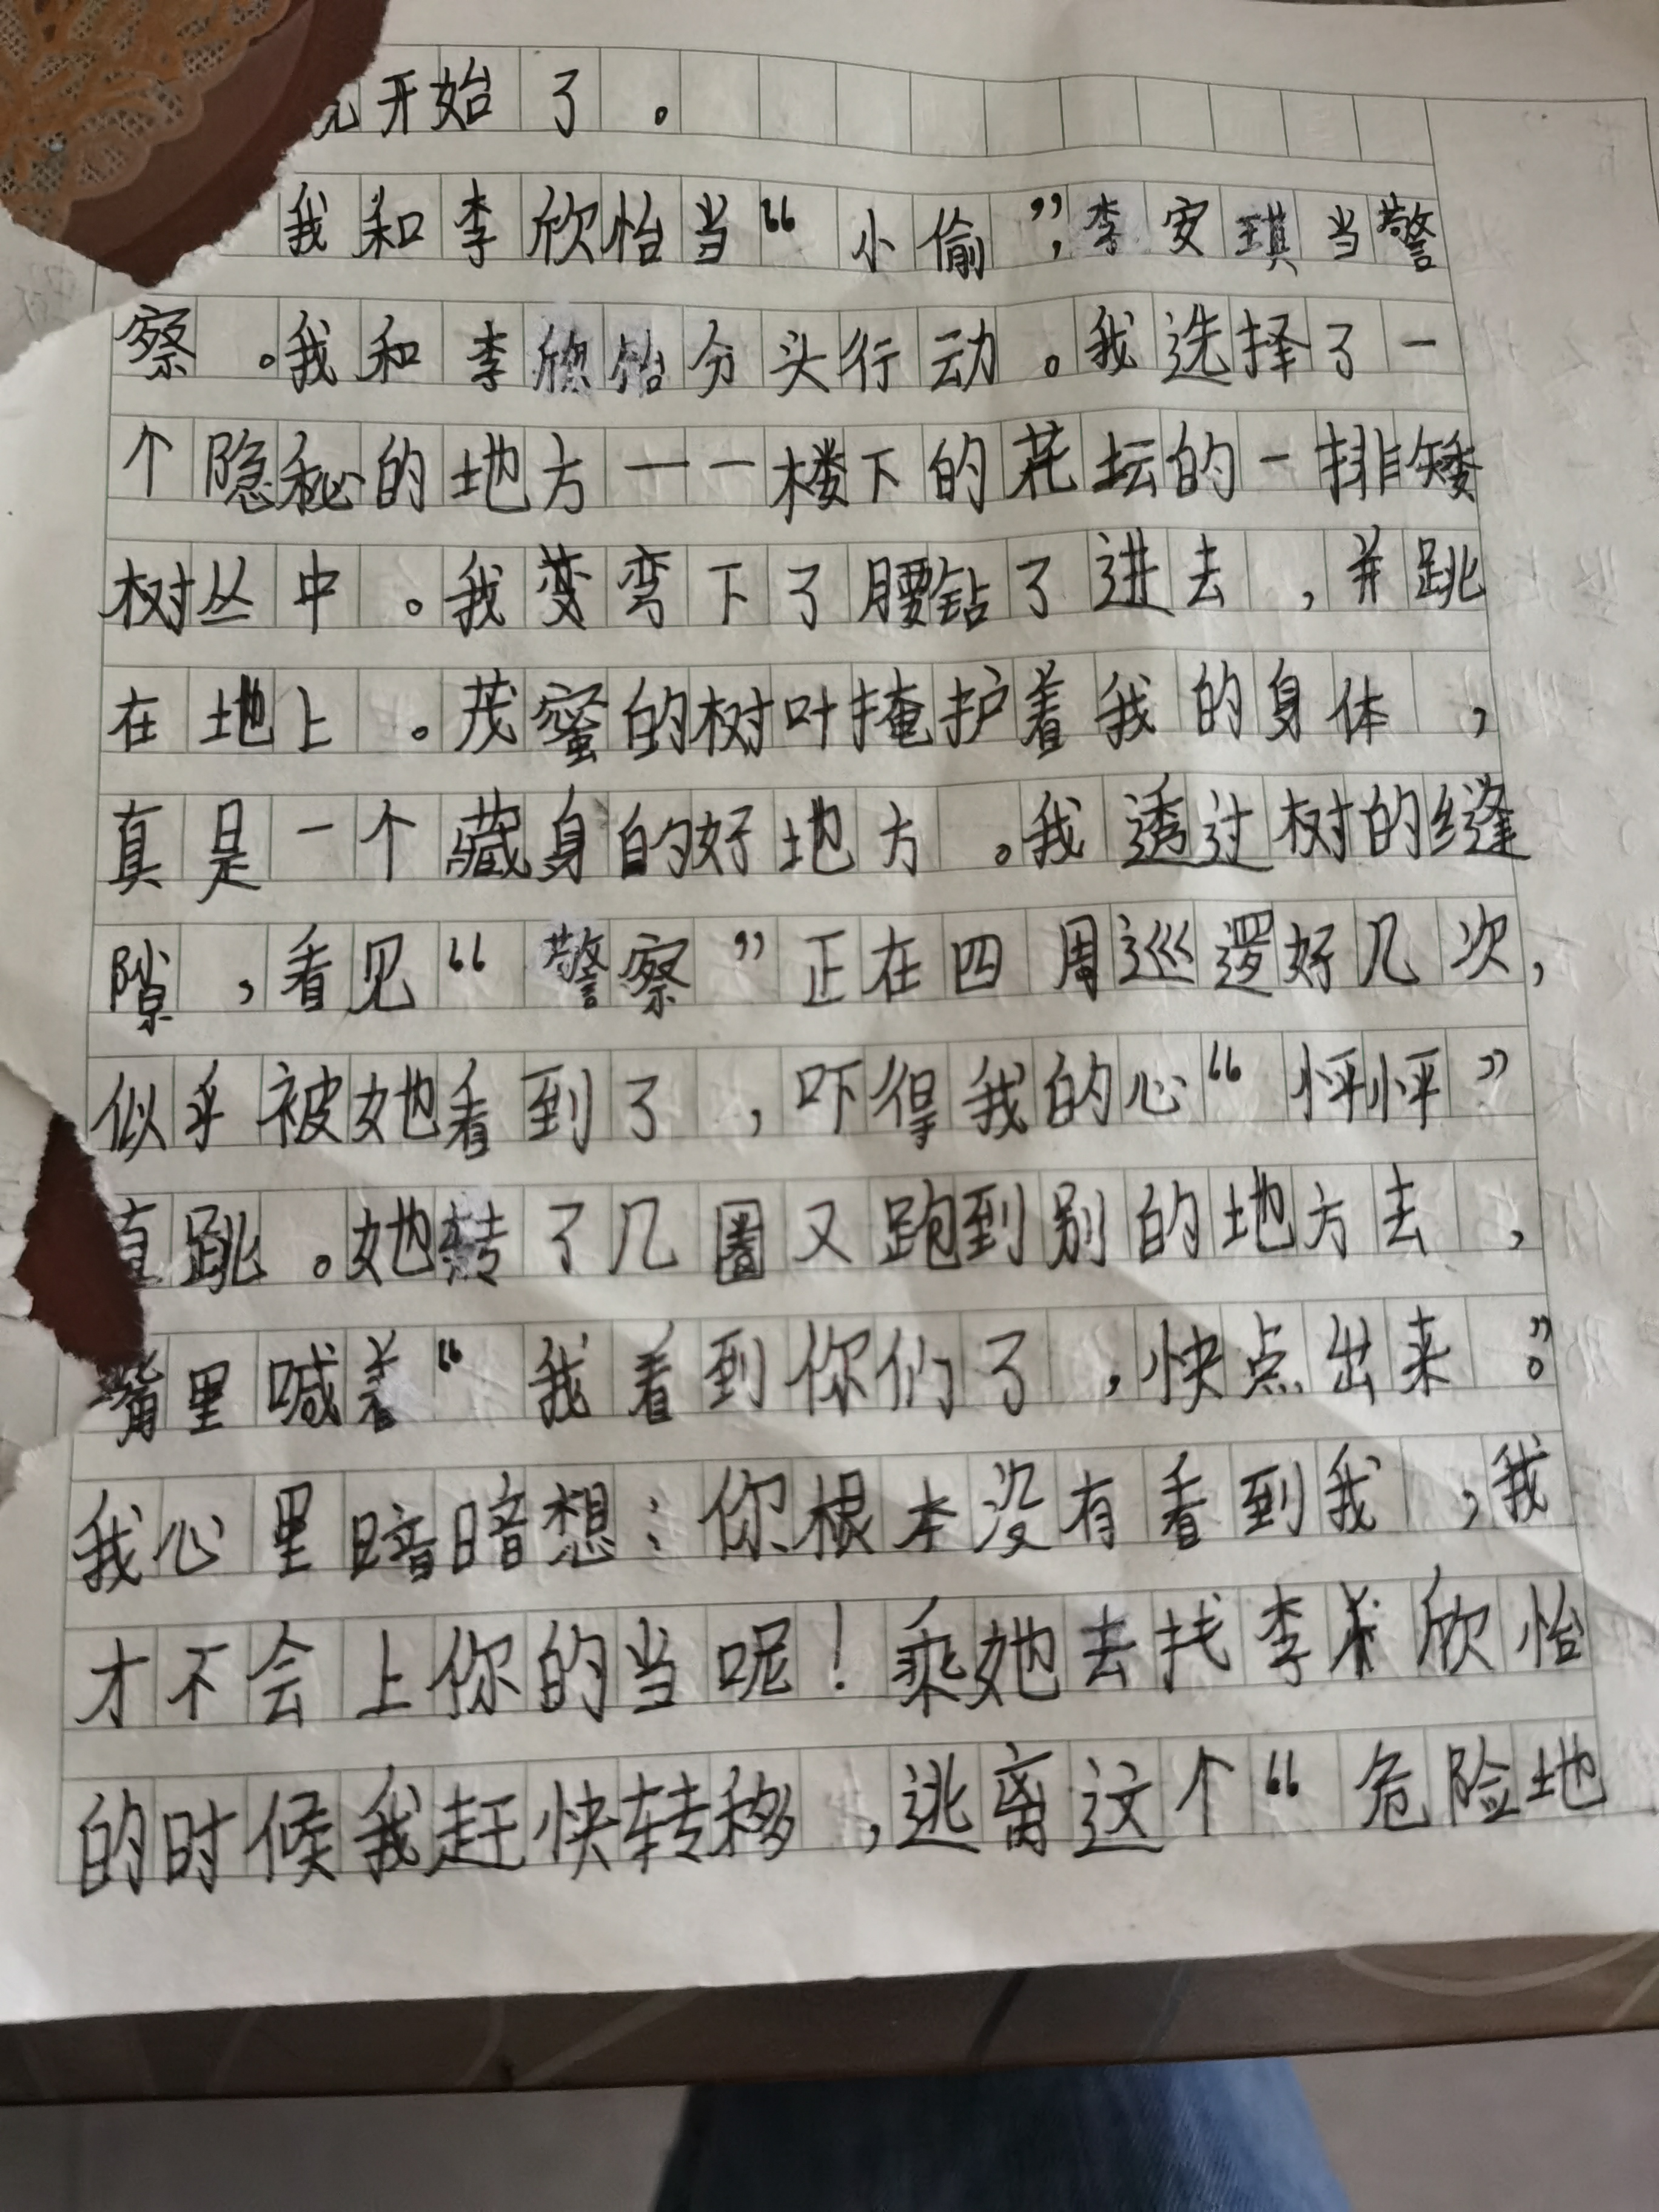 开始了。
我和李欣怡当“小偷”,李安琪当警
察。我和李欣怡分头行动。我选择了一
个隐秘的地方一一楼下的花坛的一排矮
树丛中。我变弯下了腰钻了进去,并跳
在地上。茂蜜的树叶掩护着我的身体,
真是一个藏身的好地方。我透过树的缝
隙,看见“警察”正在四周巡逻好几次,
似乎被她看到了,吓得我的心“怦怦”
直跳。她转了几圈又跑到别的地方去,
嘴里喊着“我看到你们了,快点出来”。
我心里暗暗想:你根本没有看到我,我
才不会上你的当呢!乘她去找李欣怡
的时候我赶快转移,逃离这个“危险地